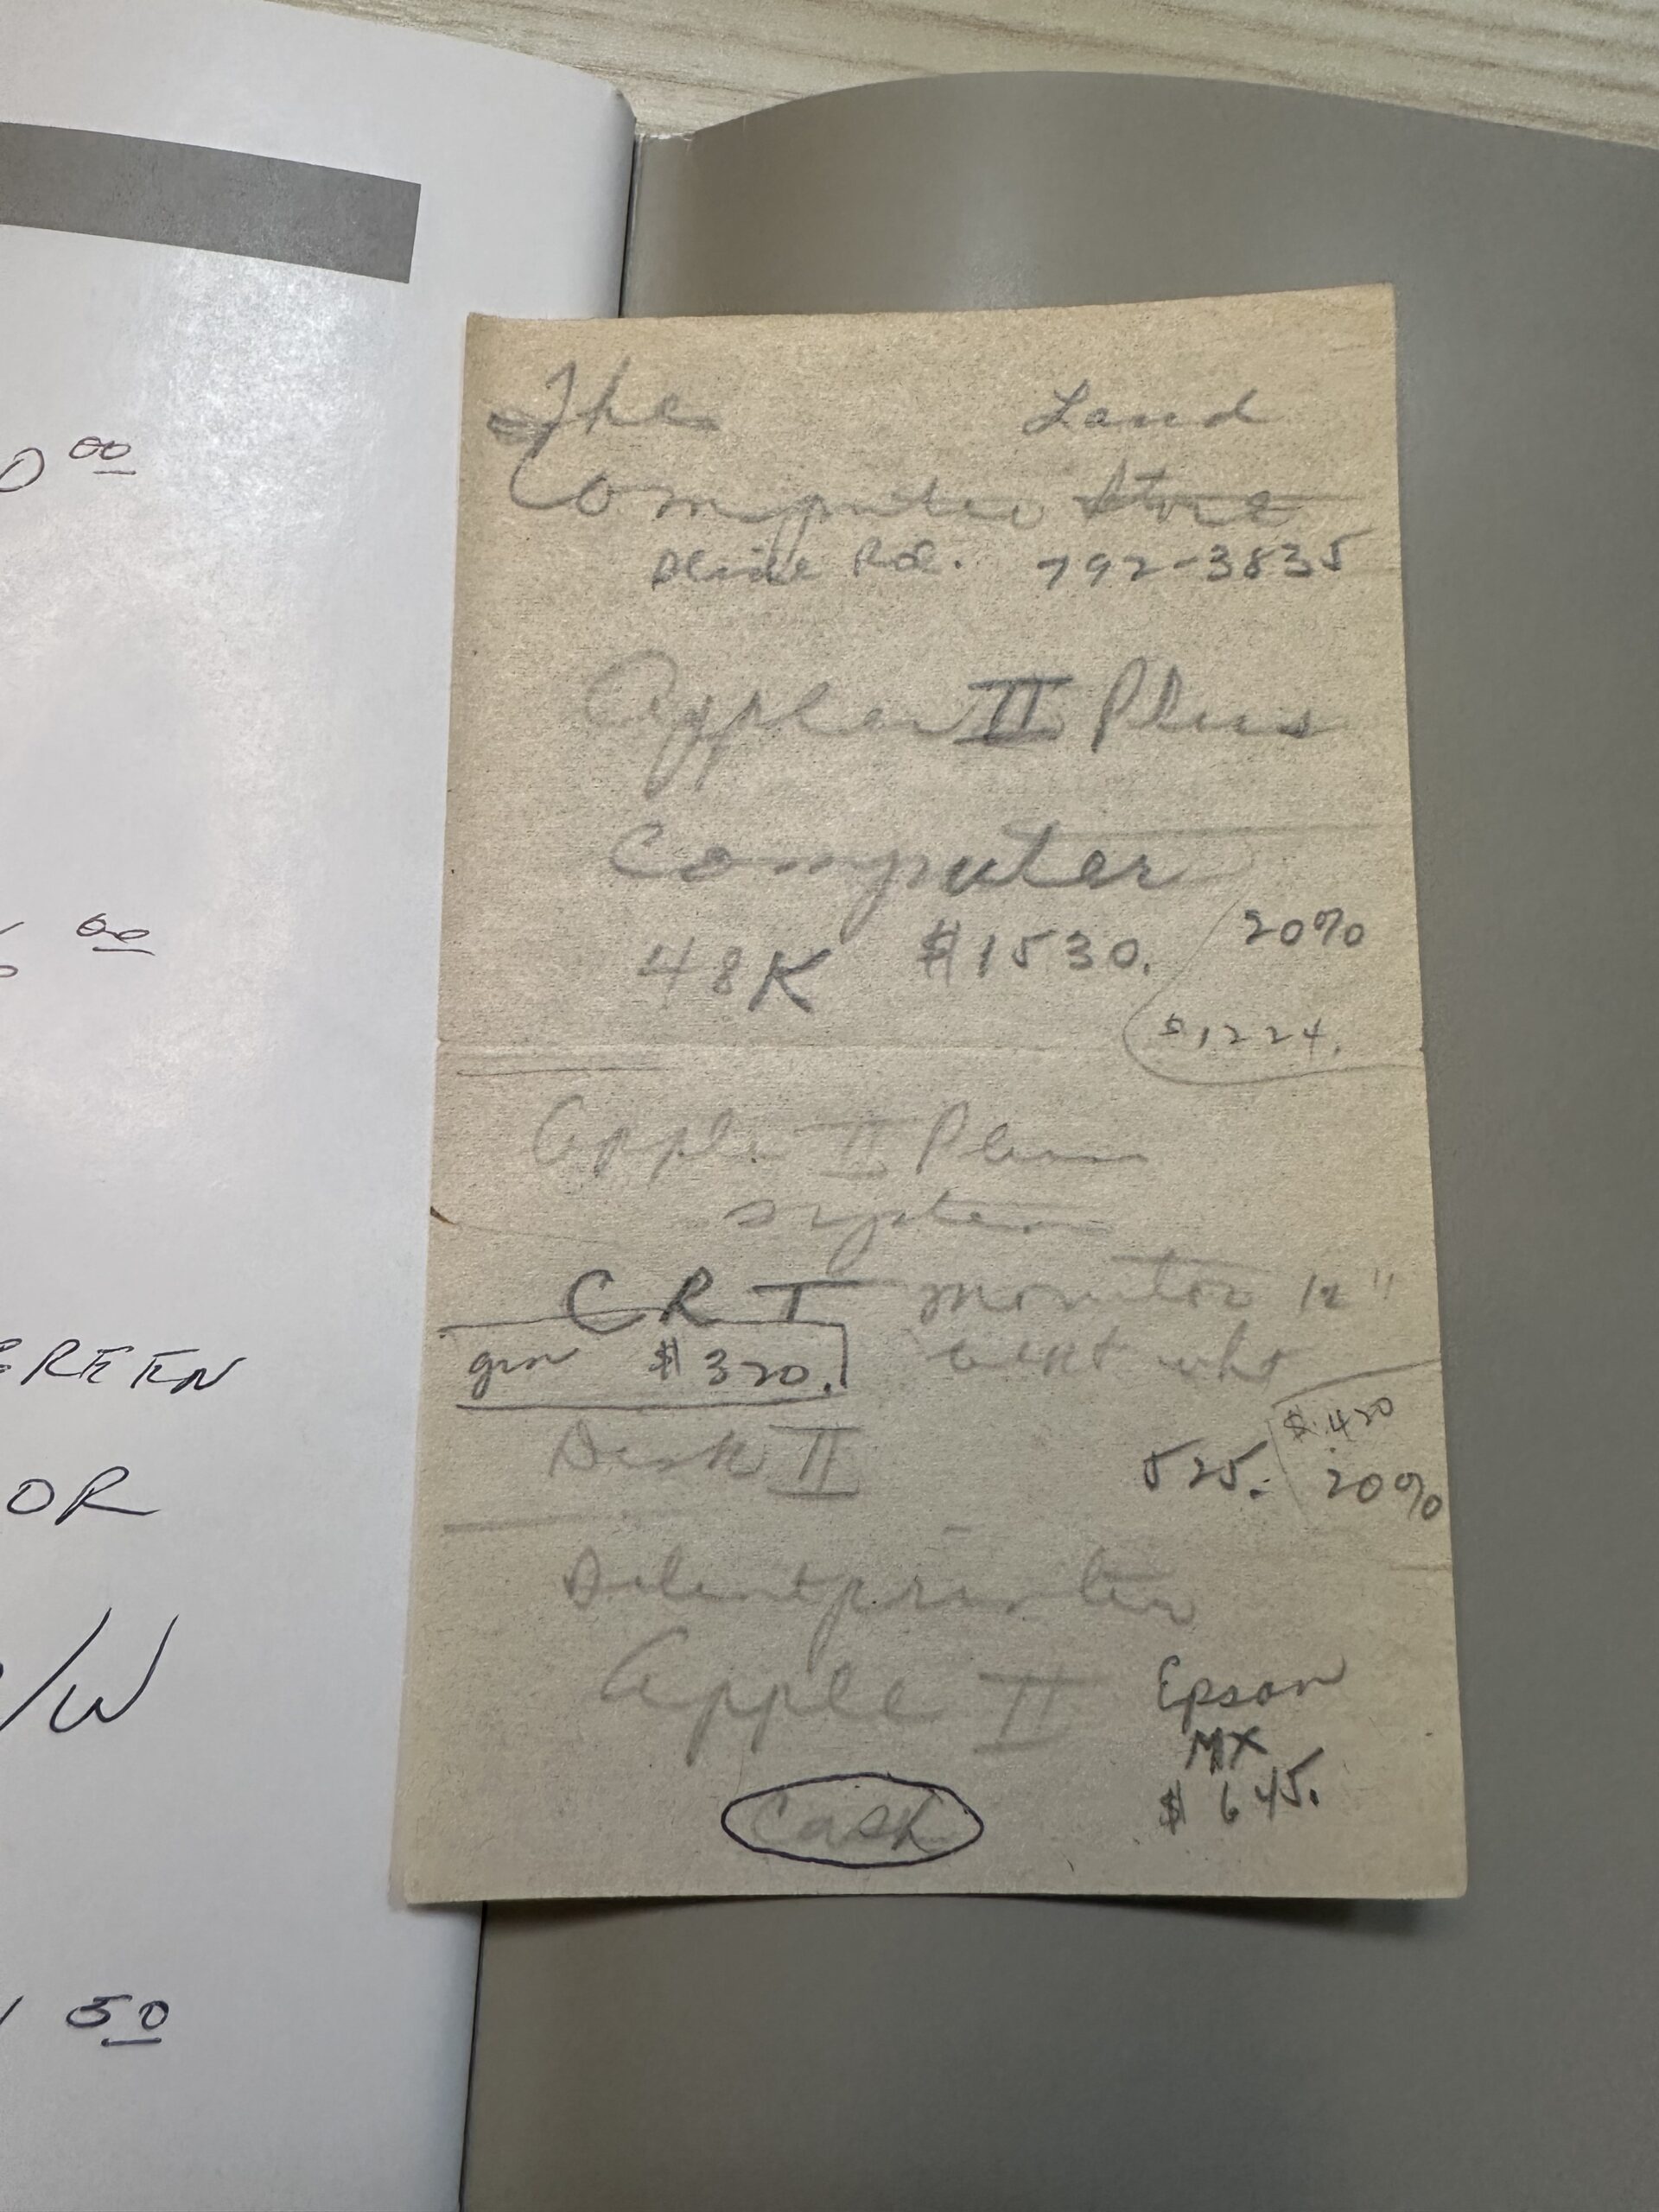 0 00
00
GREEN
OR
/W
50
The Land
Computer Store
Rd. 792-3835
Apple II Plus
Computer
48K $1530. 20%
$1224.
Apple II Plus
system
CRT monitor 12"
grn $320. wht
$420
Disk II 525. 20%
Silentprinter
Apple II Epson
MX
Cash $645.